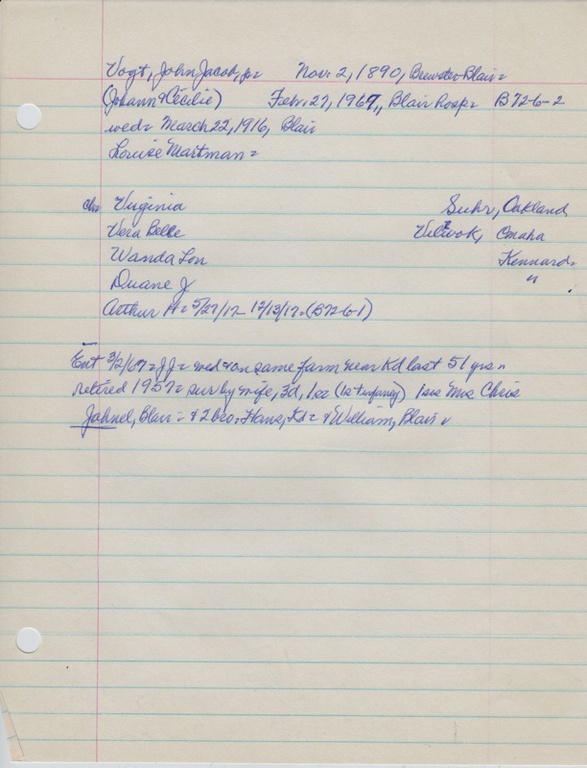 Vogt, John Jacob, jr= Nov. 2, 1890, Brewster-Blair=
(Johann & Cecilie) Febr. 27, 1967,, Blair hosp= B 72-6-2
wed= March 22, 1916, Blair
Louise Martman=
chn Virginia Suhr, Oakland
Vera Belle Velwok, Omaha
Wanda Lou Kennard=
Duane J "
Arthur H= 5/27/17- 12/13/17=(B72-6-1)
Ent 3/2/67=JJ= wed & on same farm near Kd last 51 yrs=
retired 1957= sur by wife, 3d, 1sc (1s + infancy) 1sis Mrs Chris
Johnel, Blair= & 2 bro. Hans, Kd= & William, Blair=